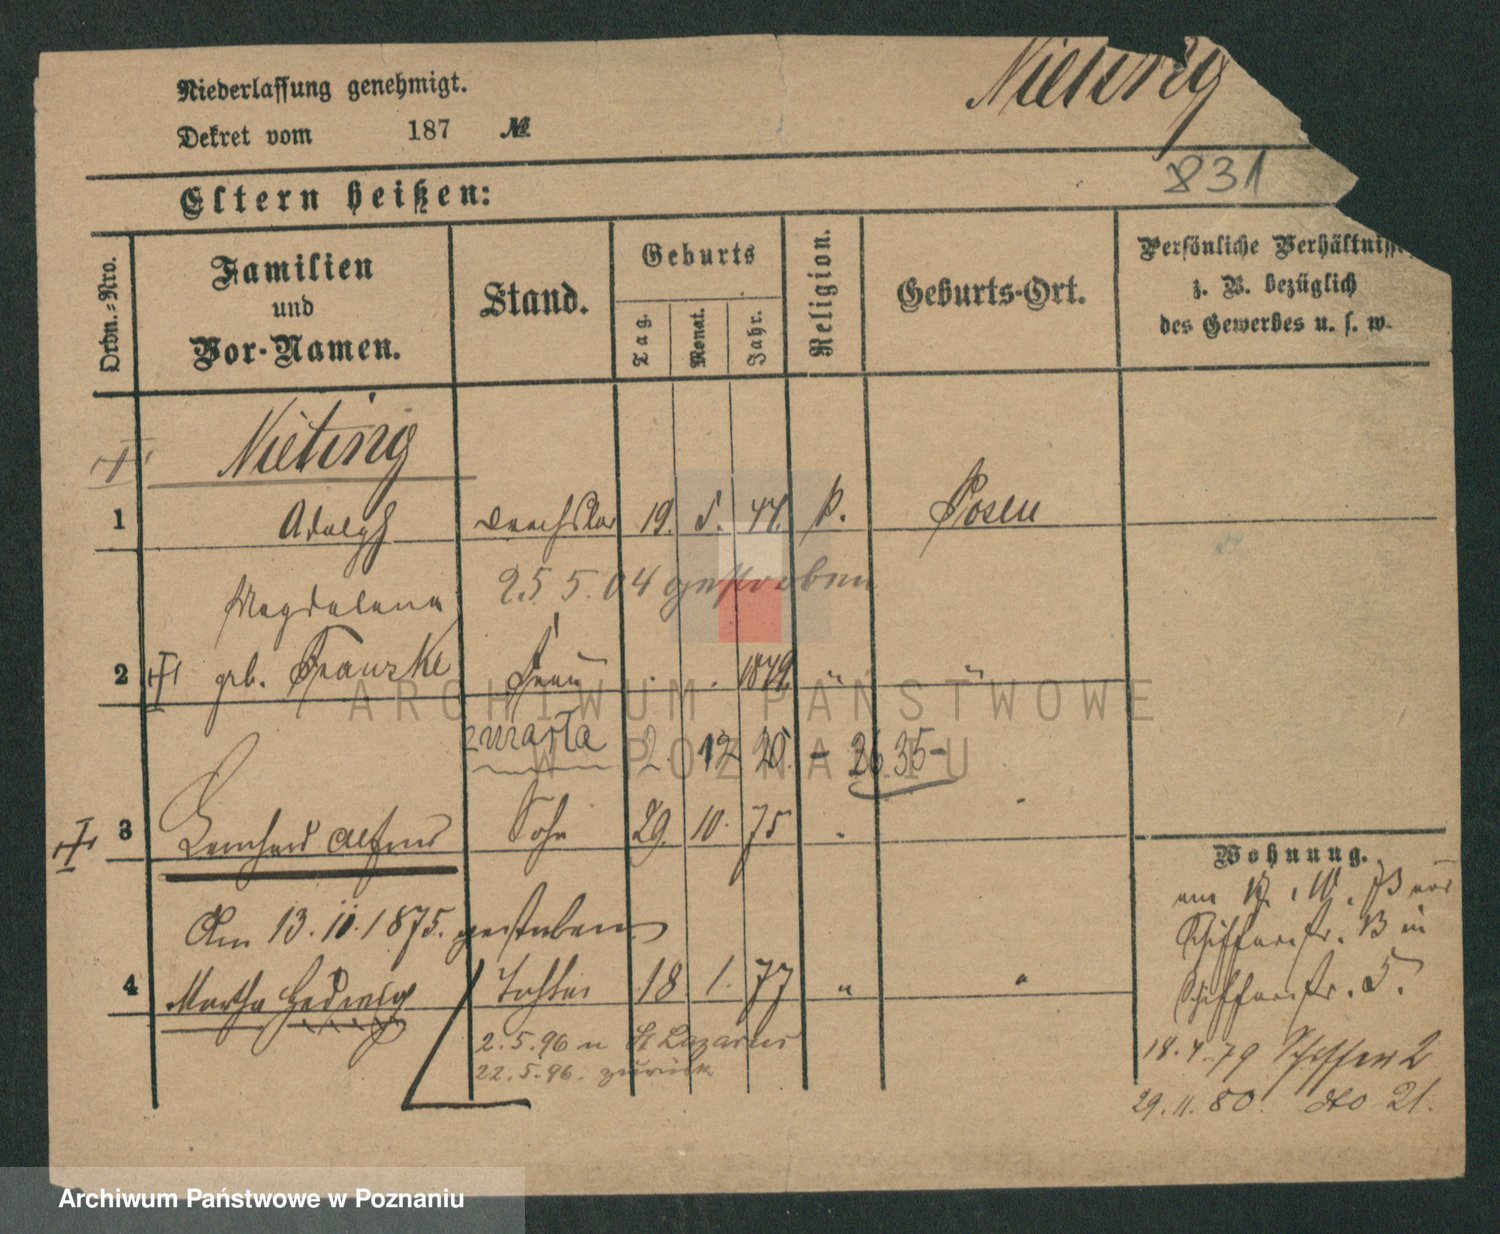 Niederlassung genehmigt.
Nieting
Dekret vom 187 №
831
Eltern heißen:
Ordn.-Nro.
Familien und Vor-Namen.
Stand.
Geburts
Tag.
Monat.
Jahr.
Religion.
Geburts-Ort.
Persönliche Verhältniss
z. B. bezüglich
des Gewerbes u. s. w.
Nieting
1 Adolph Drechsler 19. 5. 47. k. Posen
25 5. 04 gestorben
Magdalena
2 geb. Franzke Frau 1849. " "
zmarła 2. 12 20. - 26.35-
3 Bernhard Alfons Sohn 29. 10. 75 "
Am 13. 11. 1875. gestorben
4 Martha Hedwig Tochter 18 1. 77 " "
2.5.96 n St Lazarus
22.5.96. zurück
Wohnung.
Schifferstr. 13 in
Schifferstr. 5.
18.4.79 Schiffer 2
29.11.80. dto 21.
ARCHIWUM PAŃSTWOWE
W POZNANIU
Archiwum Państwowe w Poznaniu